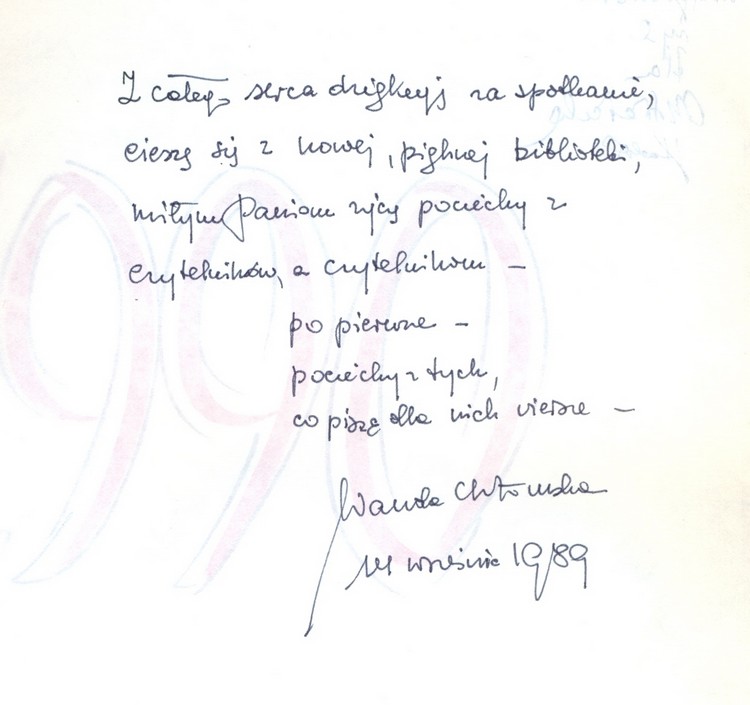 Z całego serca dziękuję za spotkanie,
cieszę się z nowej, pięknej biblioteki,
miłym Paniom życzę pociechy z
czytelników, a czytelnikom –
po pierwsze –
pociechy z tych,
co piszą dla nich wiersze –
Wanda Chotomska
we wrześniu 1989
990